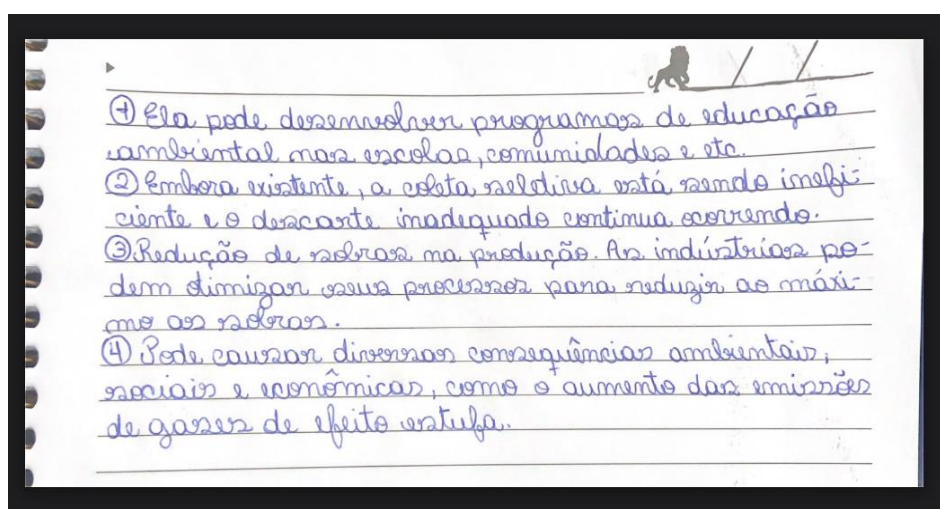 ① Ela pode desennvolver programas de educação
ambiental nas escolas, comunidades e etc.
② Embora existente, a coleta seletiva está sendo inefi-
ciente e o descarte inadequado continua ocorrendo.
③ Redução de sobras na produção. As indústrias po-
dem otimizar seus processos para reduzir ao máxi-
mo as sobras.
④ Pode causar diversas consequências ambientais,
sociais e econômicas, como o aumento das emissões
de gases de efeito estufa.